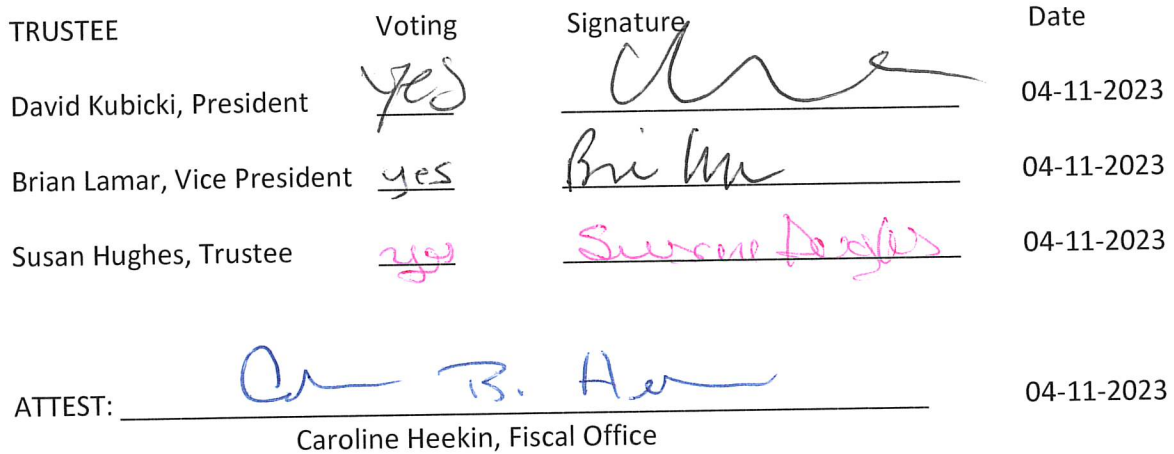 TRUSTEE Voting Signature Date
David Kubicki, President yes 04-11-2023
Brian Lamar, Vice President yes 04-11-2023
Susan Hughes, Trustee yes 04-11-2023
ATTEST: B. 04-11-2023
Caroline Heekin, Fiscal Office